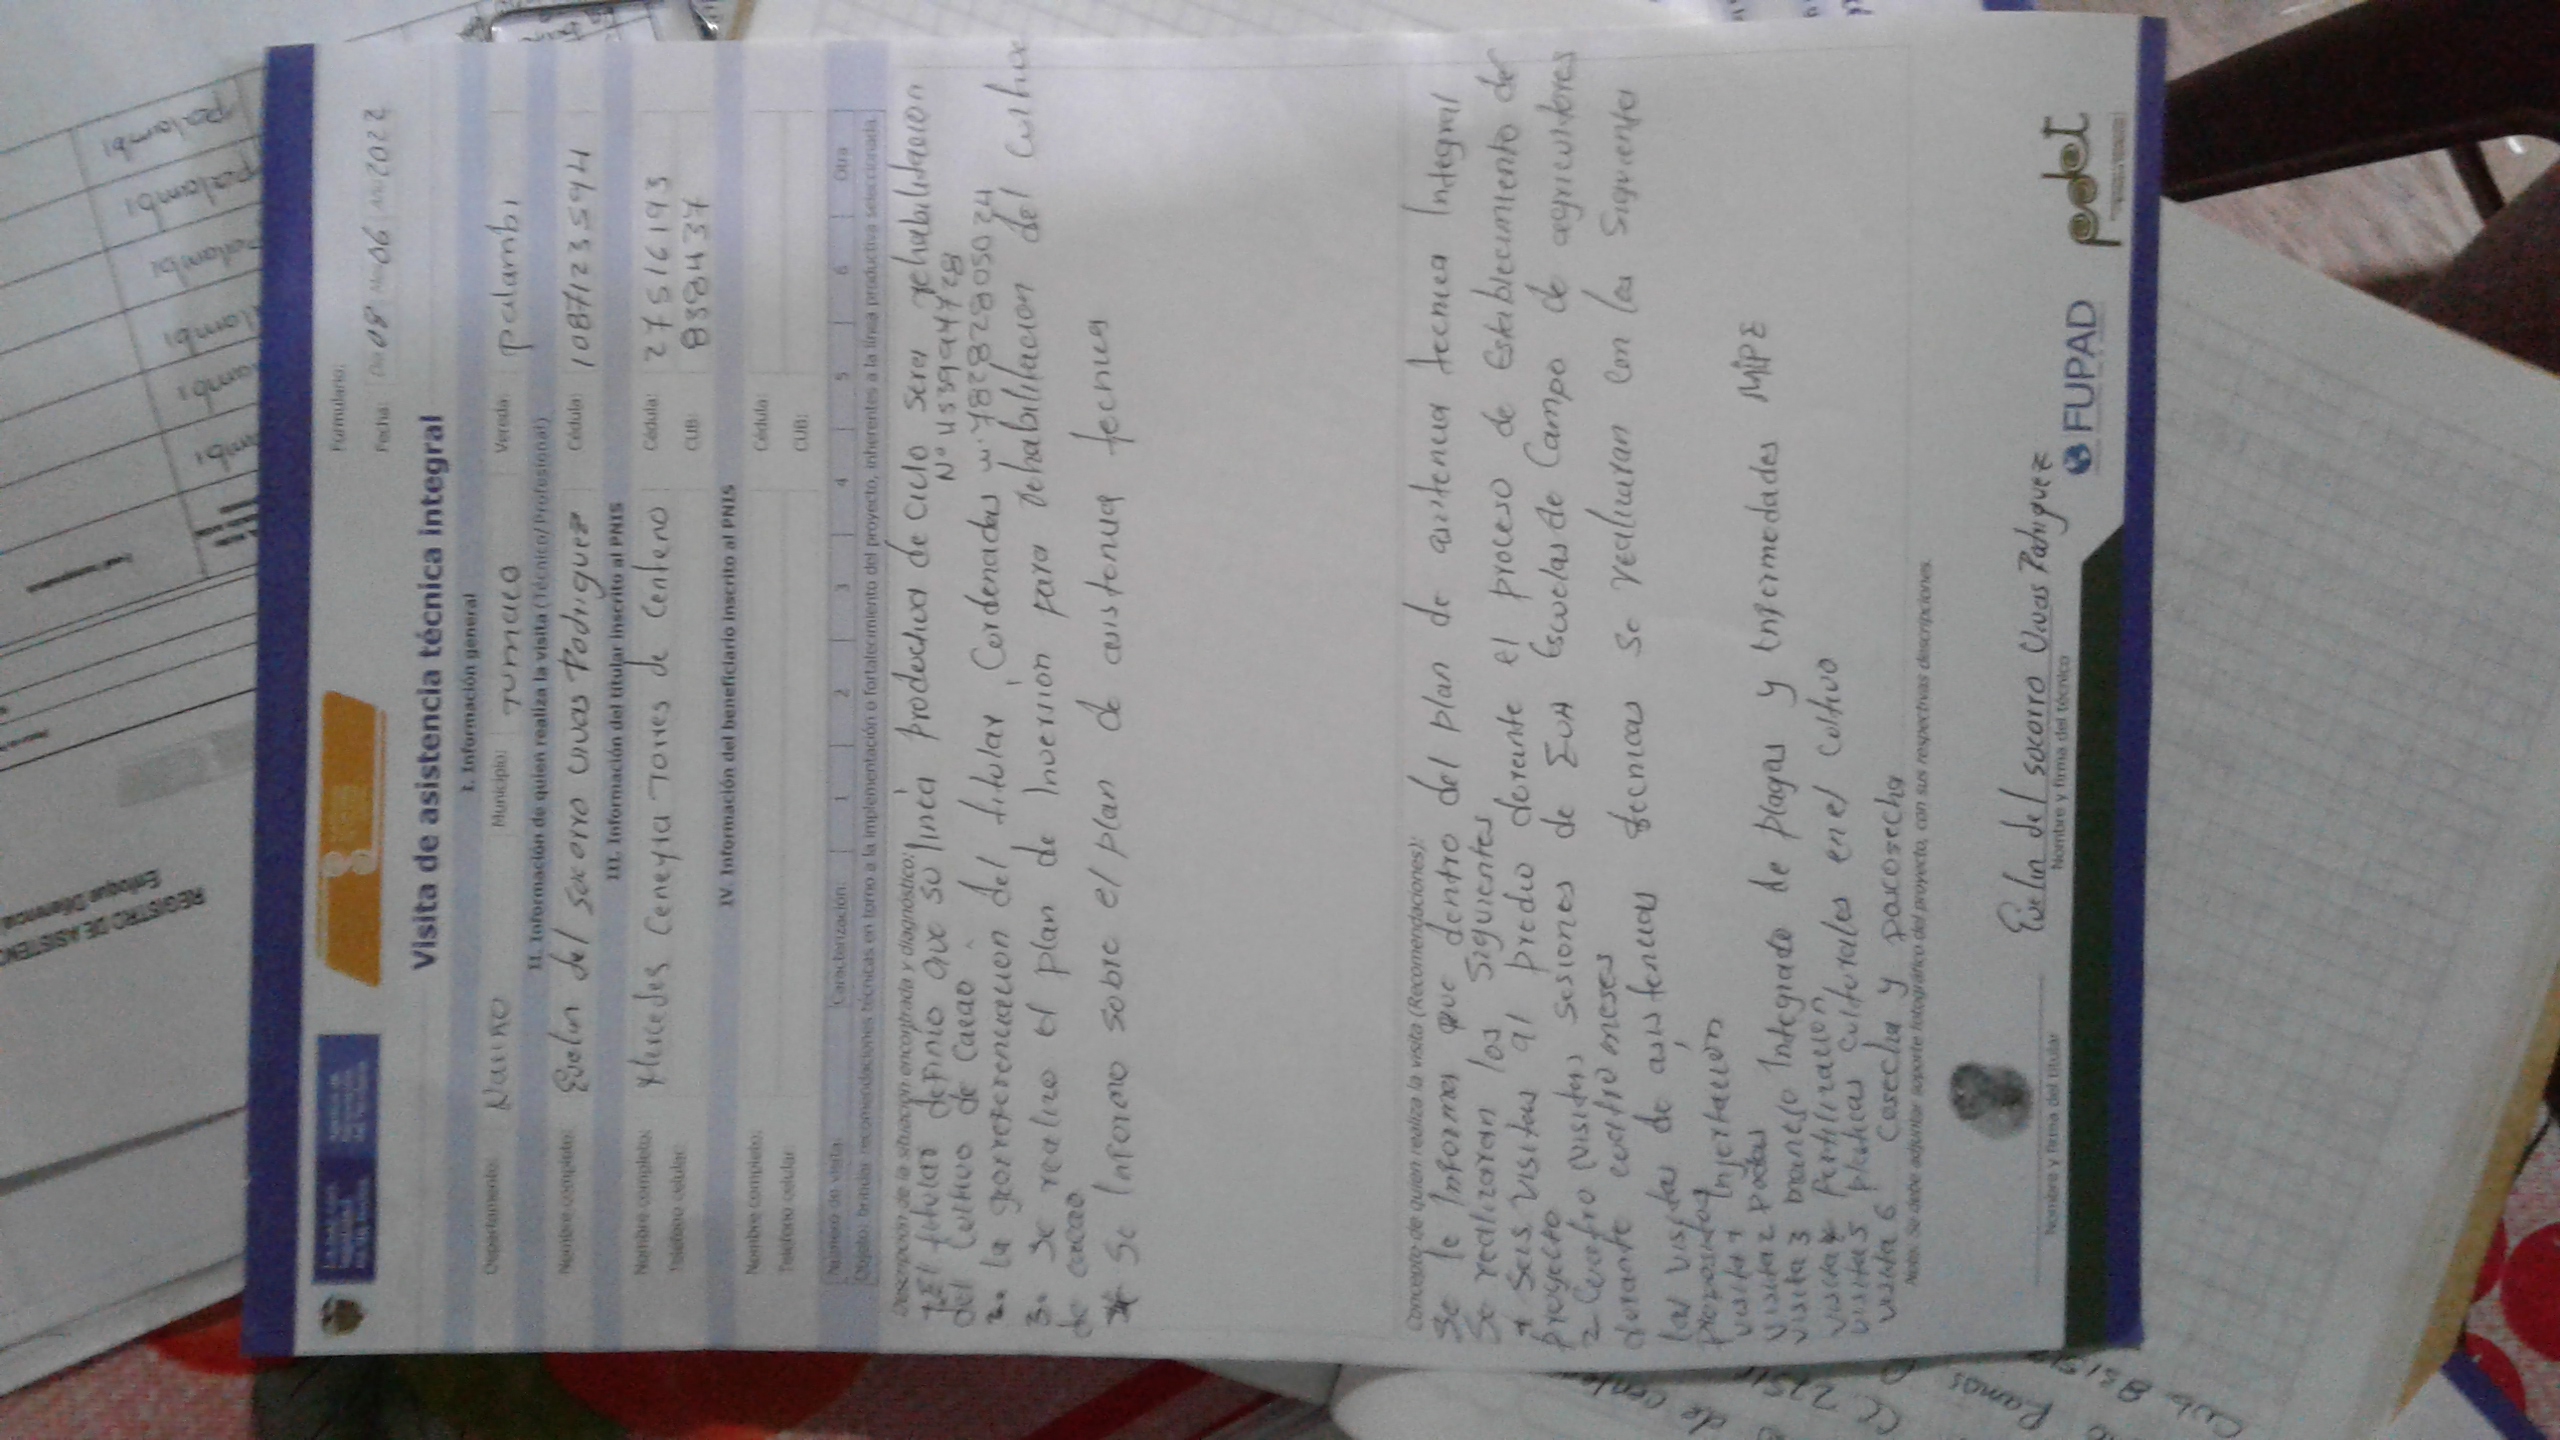 Formulario:
Fecha: Día 08 Mes 06 Año 2022
Visita de asistencia técnica integral
I. Información general
Departamento: Nariño Municipio: Tumaco Vereda: palambi
II. Información de quien realiza la visita (Técnico/Profesional)
Nombre completo: Evelin del socorro vivas Rodriguez Cédula: 1087123594
III. Información del titular inscrito al PNIS
Nombre completo: Mercedes Ceneyra Torres de Centeno Cédula: 27516193
Teléfono celular: CUB: 8388437
IV. Información del beneficiario inscrito al PNIS
Nombre completo: Cédula:
Teléfono celular: CUB:
Número de visita: Caracterización: 1 2 3 4 5 6 Otra
Objeto: brindar recomendaciones técnicas en torno a la implementación o fortalecimiento del proyecto, inherentes a la línea productiva seleccionada.
Descripción de la situación encontrada y diagnóstico:
1. El titular definio que su linea productiva de ciclo sera rehabilitacion
del cultivo de cacao
2. la georreferenciacion del titular, Cordenadas
3. se realizo el plan de Inversion para rehabilitacion del cultivo
de cacao
* Se Informo sobre el plan de asistencia tecnica
Concepto de quien realiza la visita (Recomendaciones):
Se le Informa que dentro del plan de asistencia tecnica Integral
Se realizaran las siguientes
1 Seis visitas al predio durante el proceso de Establecimiento del
proyecto
2 Cuatro visitas sesiones de ECA Escuelas de Campo de agricultores
durante cuatro meses
las visitas de asistencias tecnicas se realizaran con las Siguientes
propuestas
visita 1 Injertacion
visita 2 podas
visita 3 manejo Integrado de plagas y Enfermedades MIPE
visita 4 fertilizacion
visita 5 practicas culturales en el Cultivo
visita 6 cosecha y poscosecha
Nota: Se debe adjuntar soporte fotográfico del proyecto, con sus respectivas descripciones.
Evelin del socorro vivas Rodriguez
Nombre y firma del titular Nombre y firma del técnico
FUPAD
pdet
REGISTRO DE ASISTENC
palambi
palambi